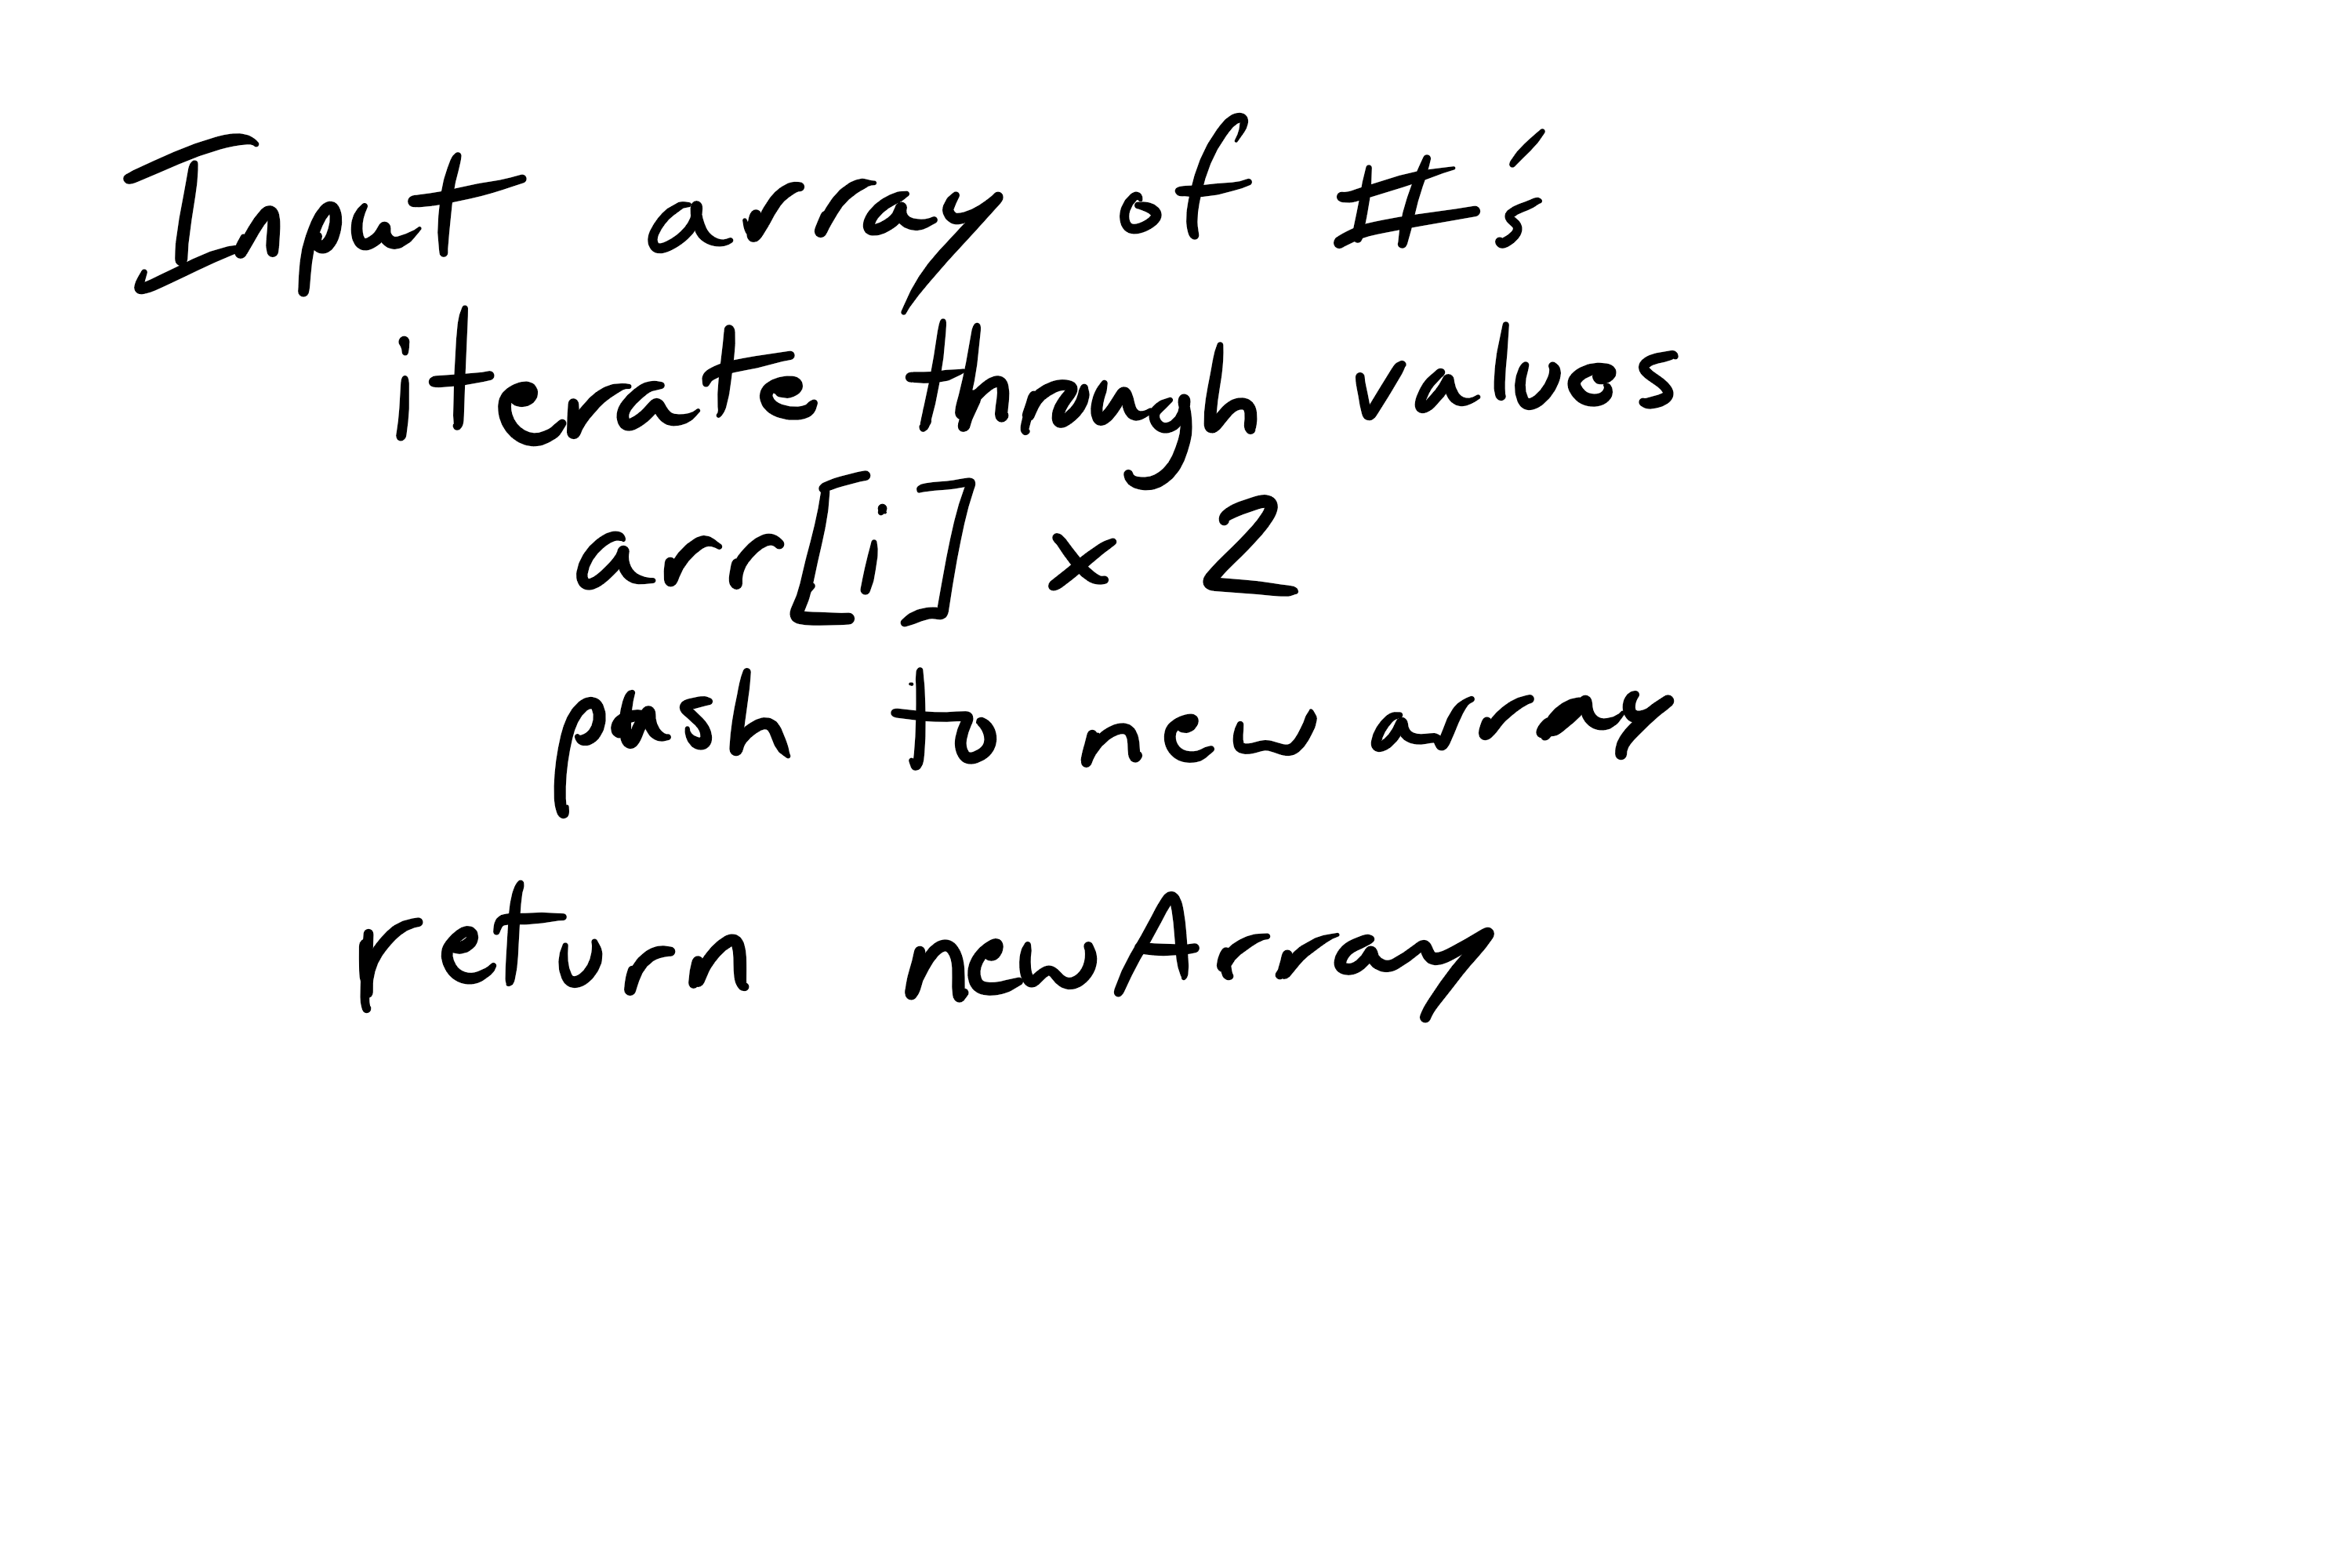 Input array of #'s
iterate through values
arr[i] x 2
push to new array
return newArray